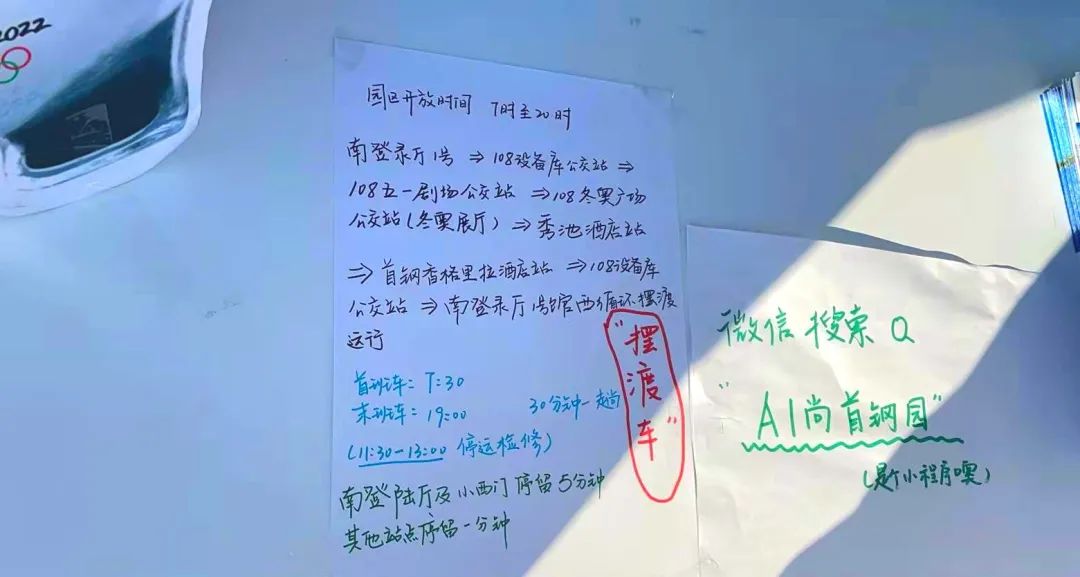 2022
园区开放时间 7时至20时
南登录厅1号 ⇒108设备库公交站⇒
108五一剧场公交站 ⇒108冬奥广场
公交站(冬奥展厅) ⇒ 秀池酒店站
⇒ 首钢香格里拉酒店站 ⇒108设备库
公交站 ⇒ 南登录厅1号馆西门循环摆渡
运行
首班车: 7:30
末班车: 19:00 30分钟一趟
(11:30-13:00 停运检修)
南登陆厅及小西门停留5分钟
其他站点停留一分钟
"摆渡车"
微信搜索Q
"AI尚首钢园"
(是个小程序噢)